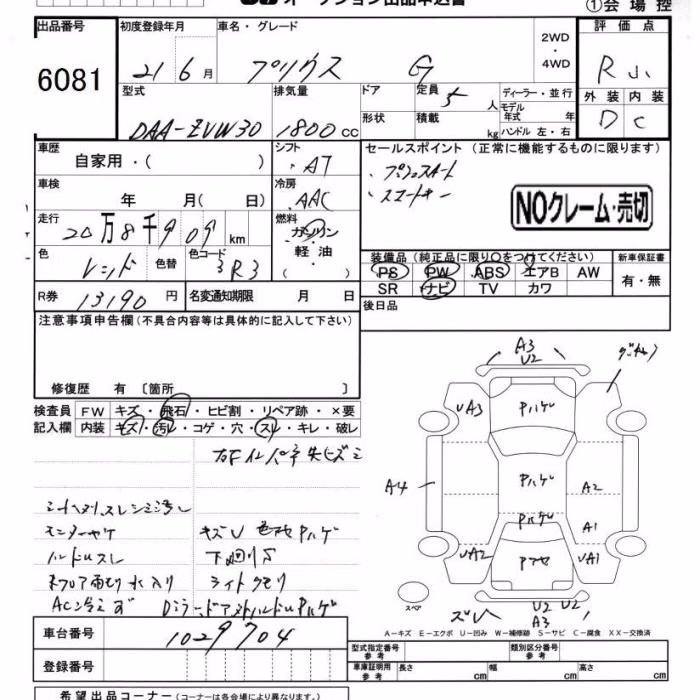 ①会場控
出品番号 初度登録年月 車名・グレード 評価点
6081 21 6月 プリウス G 2WD・4WD R
型式 排気量 ドア 定員 5人 ディーラー・並行 外装 内装
DAA-ZVW30 1800cc 形状 積載 kg モデル年式 年 D C
ハンドル 左・右
車歴 自家用・( ) シフト AT セールスポイント (正常に機能するものに限ります)
・プッシュスタート
・スマートキー
車検 年 月( 日) 冷房 AAC
NOクレーム・売切
走行 20万8千909km 燃料 ガソリン・軽油
装備品 (純正品に限り○をつけてください) 新車保証書
PS PW ABS エアB AW 有・無
SR ナビ TV カワ
色 レッド 色替 色コード 3R3
R券 13190円 名変通知期限 月 日 後日品
注意事項申告欄(不具合内容等は具体的に記入して下さい)
修復歴 有〔箇所 〕
検査員 FW キズ・飛石・ヒビ割・リペア跡・×要
記入欄 内装 キズ・汚レ・コゲ・穴・スレ・キレ・破レ
キズU 色褪Pハゲ
ハンドルスレ 下廻りS
水入り ライトクモリ
AC冷えず DミラードアアウトハンドルPハゲ
A3
U2
UA3 Pハゲ
A4 Pハゲ A2
Pハゲ A1
UA2 UA1
スペア
U2 U2
A3
A-キズ E-エクボ U-凹み W-補修跡 S-サビ C-腐食 XX-交換済
車台番号 1029704
型式指定番号 参考 類別区分番号 参考
登録番号 車庫証明用 参考 長さ cm 幅 cm 高さ cm
希望出品コーナー (コーナーは各会場により異なります。)